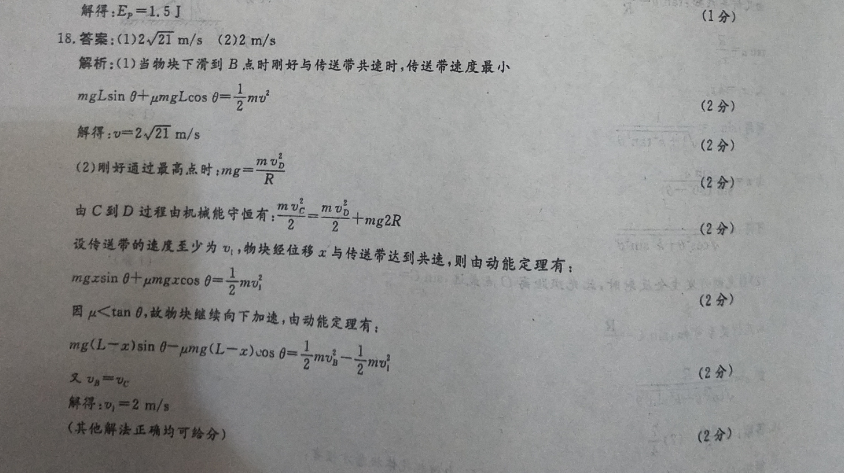 解得:Eₚ=1.5 J (1分)
18.答案:(1)2√21 m/s (2)2 m/s
解析:(1)当物块下滑到 B 点时刚好与传送带共速时,传送带速度最小
mgLsin θ+μmgLcos θ=1/2 mv² (2分)
解得:v=2√21 m/s (2分)
(2)刚好通过最高点时:mg=mv_D²/R (2分)
由 C 到 D 过程由机械能守恒有:mv_C²/2=mv_D²/2+mg2R (2分)
设传送带的速度至少为 v₁,物块经位移 x 与传送带达到共速,则由动能定理有:
mgxsin θ+μmgxcos θ=1/2 mv₁² (2分)
因 μ<tan θ,故物块继续向下加速,由动能定理有:
mg(L-x)sin θ-μmg(L-x)cos θ=1/2 mv_B²-1/2 mv₁² (2分)
又 v_B=v_C
解得:v₁=2 m/s
(其他解法正确均可给分) (2分)